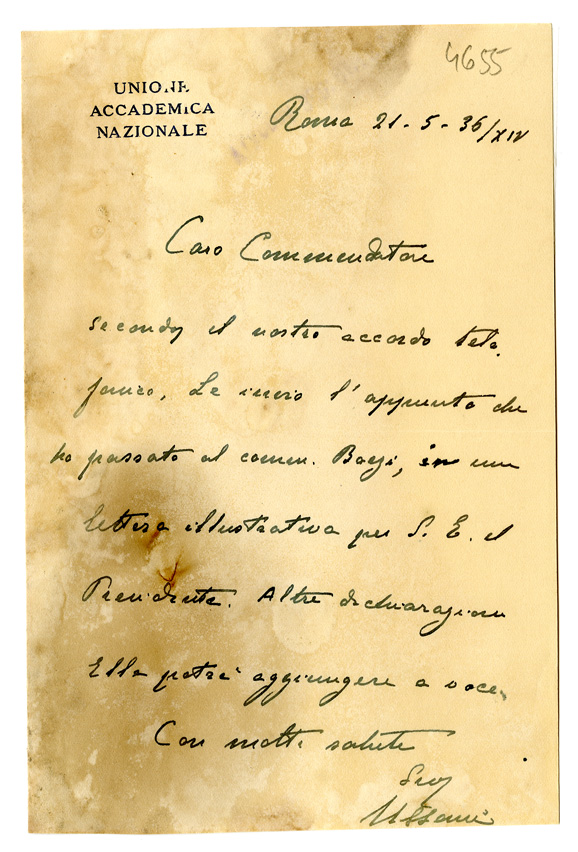 4655
UNIONE
ACCADEMICA
NAZIONALE
Roma 21-5-36/XIV
Caro Commendatore
secondo il nostro accordo tele
fonico, Le invio l'appunto che
ho passato al comm. Bagi, in una
lettera illustrativa per S. E. il
Presidente. Altre dichiarazioni
Ella potrà aggiungere a voce.
Con molti saluti
Suo
Ussani